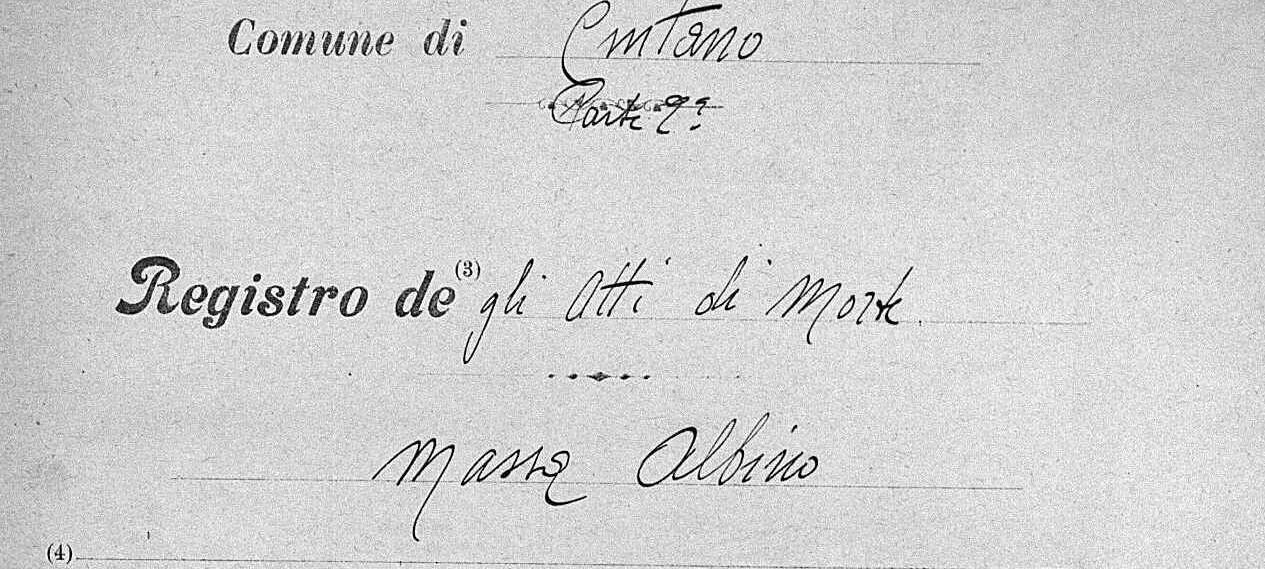 Comune di Cintano
Parte 2ª
Registro de (3) gli Atti di Morte
Massa Albino
(4)